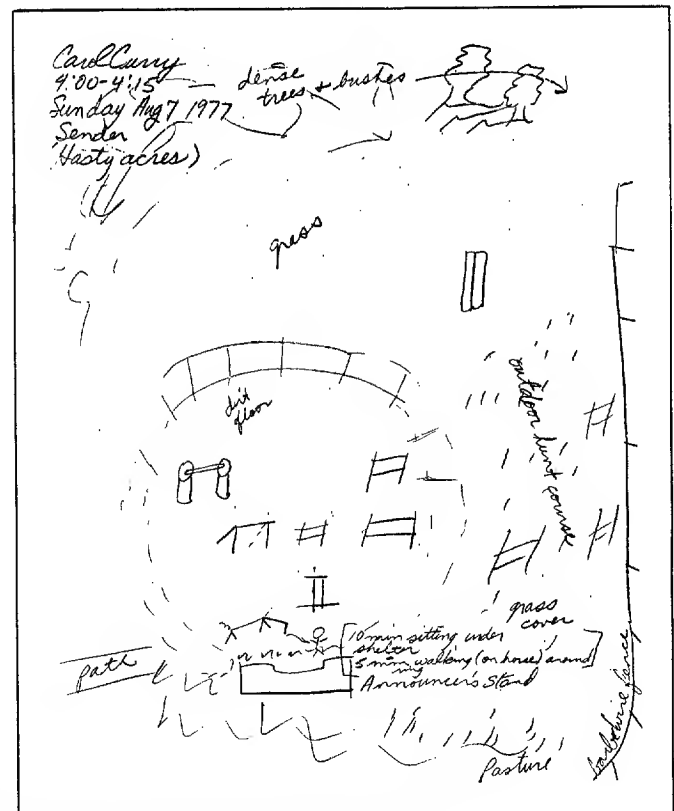 Carol Curry
4:00-4:15
Sunday Aug 7 1977
Sender
(Hasty acres)
dense
trees & bushes
grass
dirt
floor
outdoor hunt course
grass
cover
path
10 min sitting under
shelter
5 min walking (on horse) around
ring
Announcer's Stand
barbwire fence
Pasture